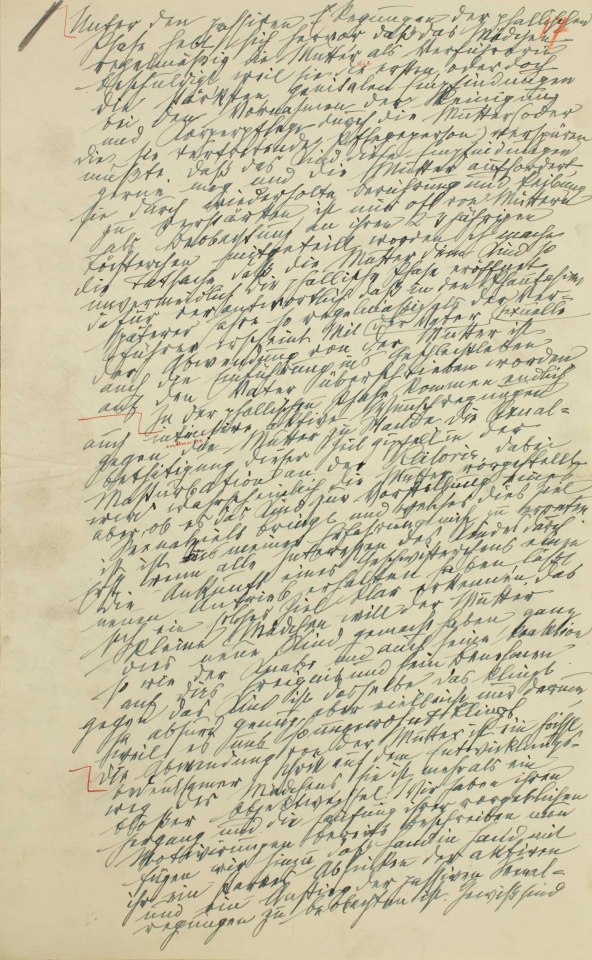 17
Unter den passiven Regungen der phallischen
Phase hebt sich hervor daß das Mädchen
regelmäßig die Mutter als Verführerin
beschuldigt weil sie die ersten oder doch
die stärksten genitalen Empfindungen
bei den Vornahmen der Reinigung
und Körperpflege durch die Mutter oder
die sie vertretende Pflegeperson verspüren
mußte daß das Kind diese Empfindungen
gerne mag und die Mutter auffordert
sie durch wiederholte Berührung und Reibung
zu verstärken ist mir oft von Müttern
als Beobachtung an ihren 2-3jährigen
Töchterchen mitgeteilt worden ich mache
die Tatsache daß die Mutter dem Kind so
unvermeidlich die phallische Phase eröffnet
dafür verantwortlich daß in den Phantasien
späterer Jahre so regelmässig der Vater als der sexuelle Ver=
führer erscheint Mit
der Abwendung von der Mutter ist
auch die Einführung ins Geschlechtsleben
auf den Vater überschrieben worden
In der phallischen Phase kommen endlich
auch intensive aktive Wunschregungen
gegen die Mutter zu Stande. die Sexual=
betätigung dieser Zeit gipfelt in der
Masturbation an der Klitoris dabei
wird wahrscheinlich die Mutter vorgestellt
aber ob es das Kind zur Vorstellung eines
Sexualziels bringt und welches dies Ziel
ist ist aus meiner Erfahrung nicht zu erraten
Erst wenn alle Interessen des Kindes durch
die Ankunft eines Geschwisterchens einen
neuen Antrieb erhalten haben läßt
sich ein solches Ziel klar erkennen, das
kleine Mädchen will der Mutter
dies neue Kind gemacht haben ganz
so wie der Knabe und auch seine Reaktion
auf dies Ereignis und sein Benehmen
gegen das Kind ist dasselbe das klingt
ja absurd genug, aber vielleicht nur darum
weil es uns so ungewohnt klingt
die Abwendung von der Mutter ist ein höchst
bedeutsamer Schritt auf dem Entwicklungs=
weg des Mädchens sie ist mehr als ein
bloßer Objektwechsel Wir haben ihren
Hergang und die Häufung ihrer vorgeblichen
Motivierungen bereits beschrieben nun
fügen wir hinzu daß Hand in Hand mit
ihr ein starkes Absinken der aktiven
und ein Anstieg der passiven Sexual=
regungen zu beobachten ist. Gewiß sind